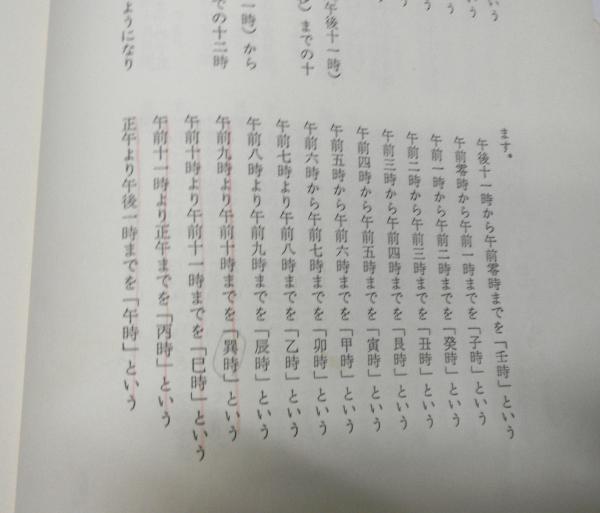 いう
いう
う
う
う
午後十一時)
までの十
一時)から
での十二時
ようになり
ます。
午後十一時から午前零時までを「壬時」という
午前零時から午前一時までを「子時」という
午前一時から午前二時までを「癸時」という
午前二時から午前三時までを「丑時」という
午前三時から午前四時までを「艮時」という
午前四時から午前五時までを「寅時」という
午前五時から午前六時までを「甲時」という
午前六時から午前七時までを「卯時」という
午前七時より午前八時までを「乙時」という
午前八時より午前九時までを「辰時」という
午前九時より午前十時までを「巽時」という
午前十時より午前十一時までを「巳時」という
午前十一時より正午までを「丙時」という
正午より午後一時までを「午時」という